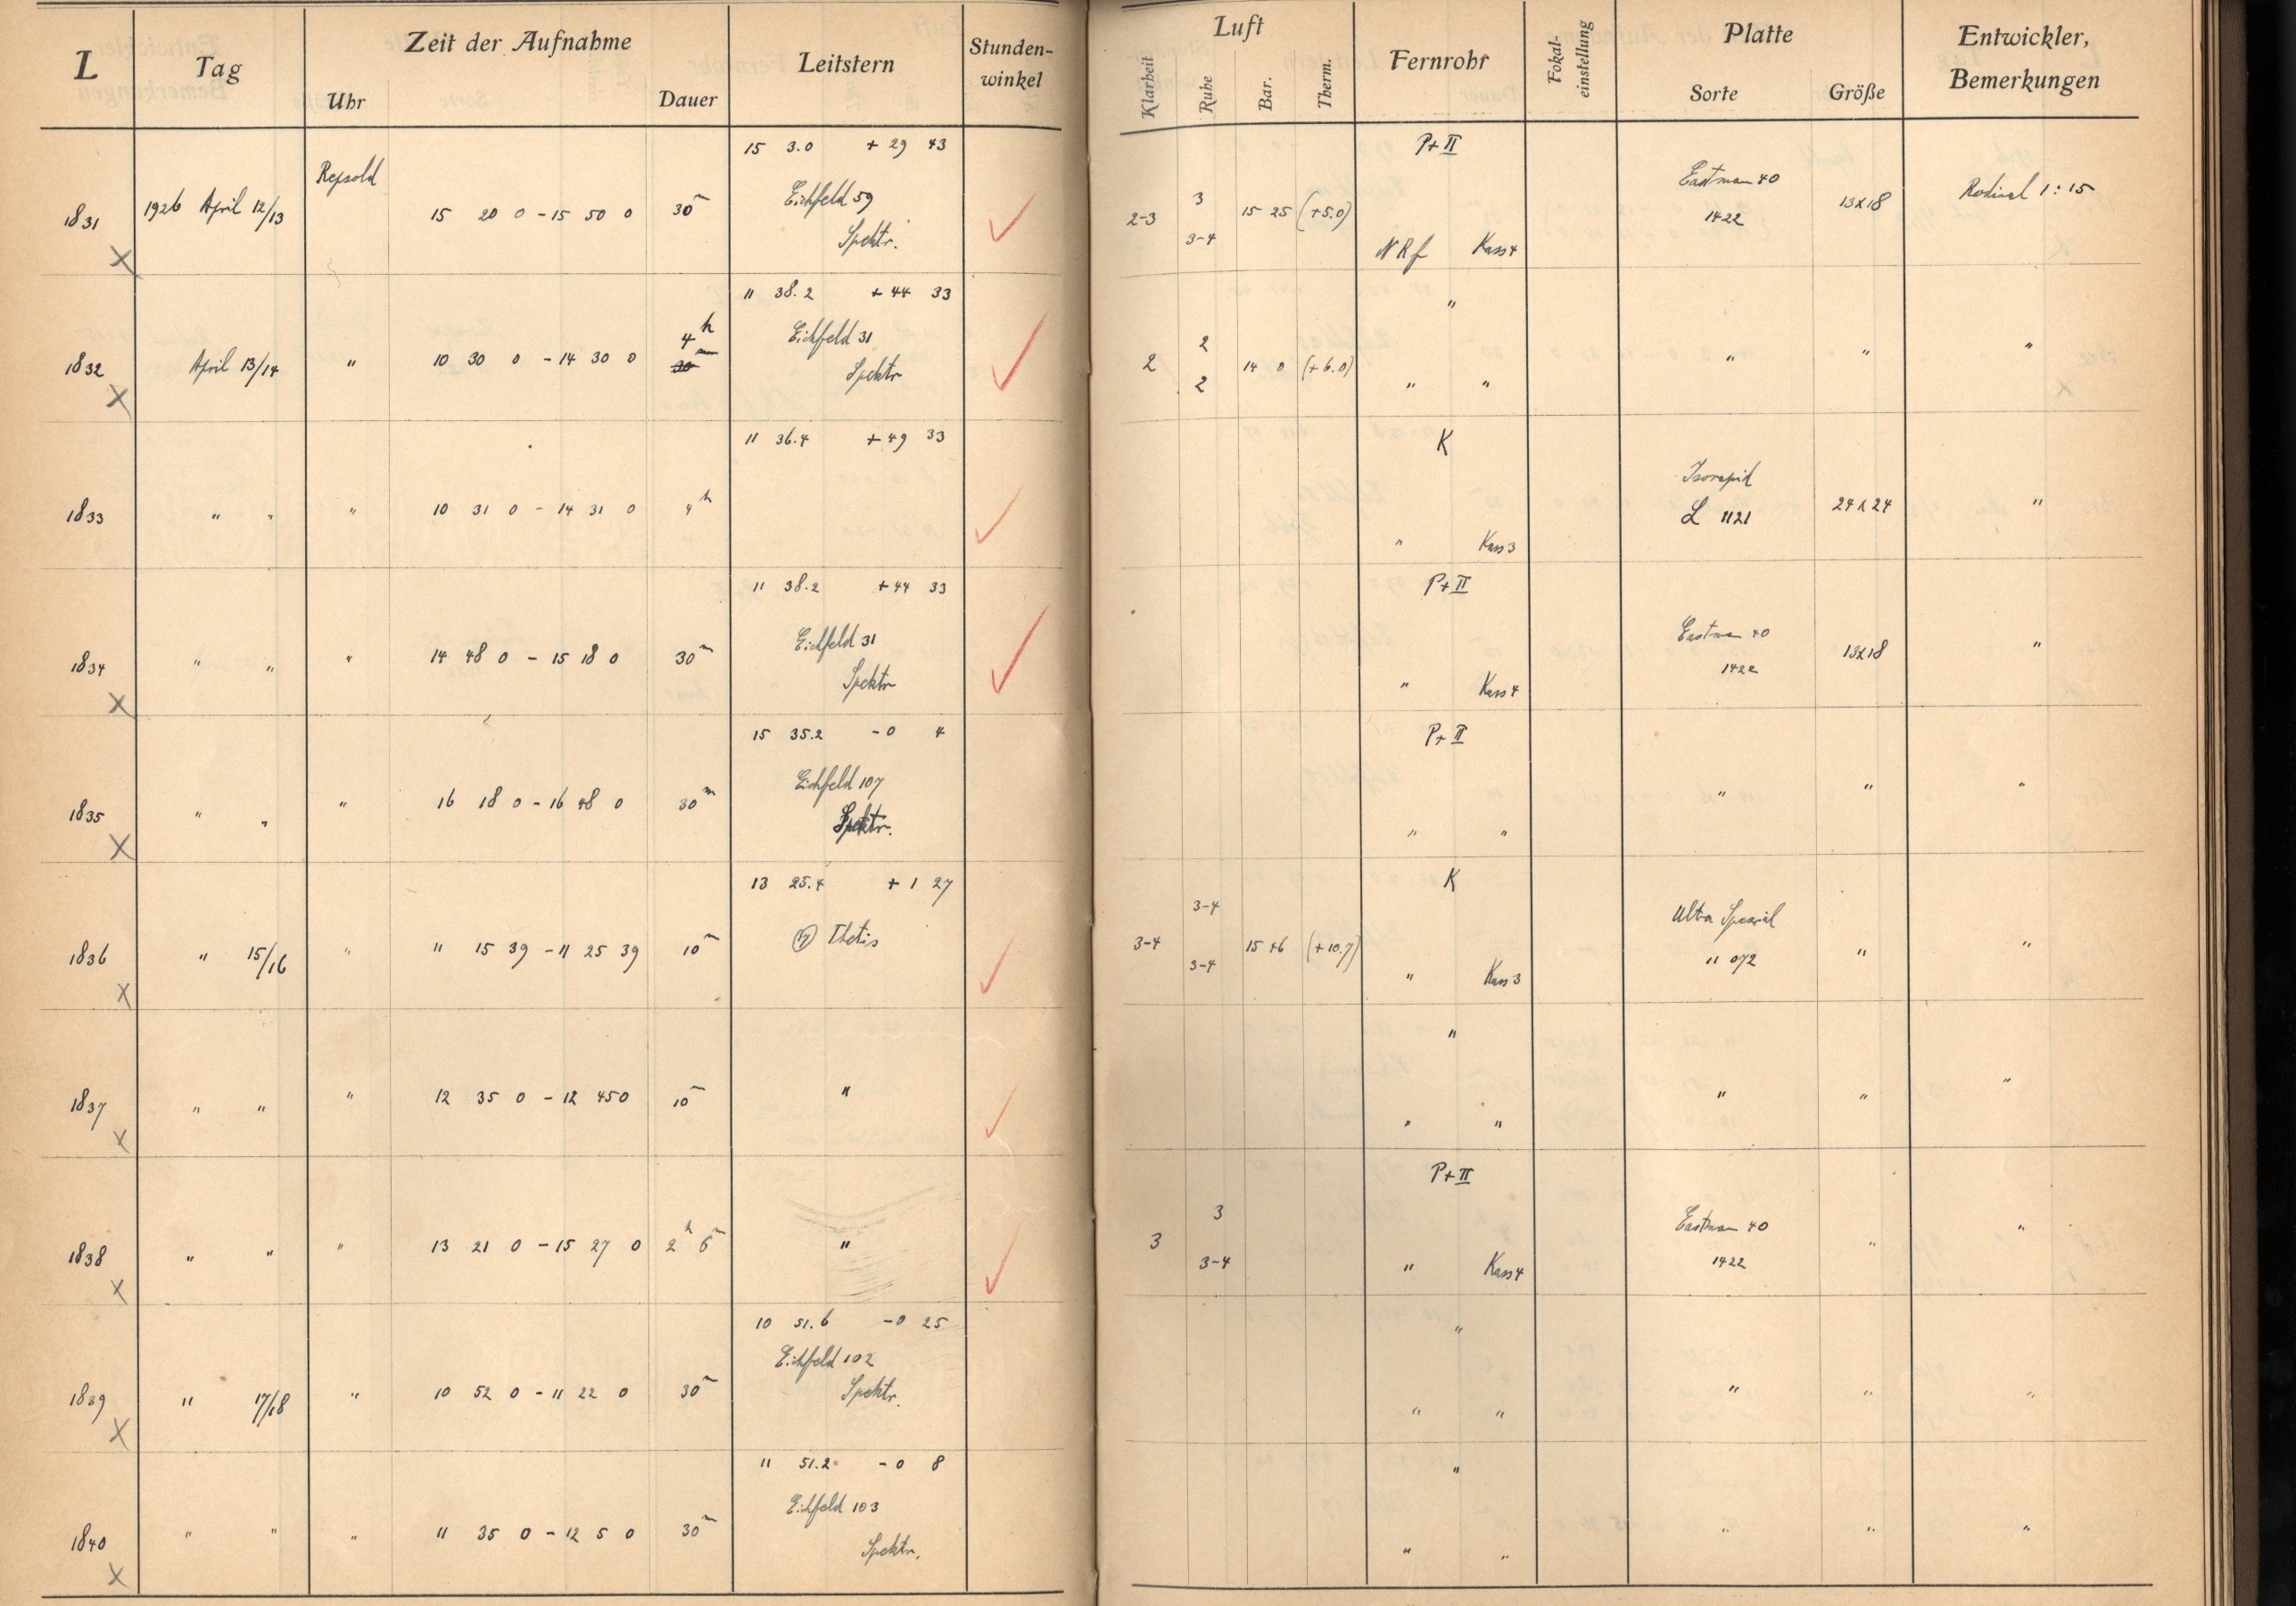 L Tag Zeit der Aufnahme Leitstern Stunden-winkel Luft Fernrohr Fokal-einstellung Platte Entwickler, Bemerkungen
Uhr Dauer Klarheit Ruhe Bar. Therm. Sorte Größe
15 3.0 + 29 43 P+II
Repsold Eichfeld 59 3 Eastman 40 Rodinal 1:15
1831 1926 April 12/13 15 20 0 - 15 50 0 30m 2-3 15 25 (+5.0) 1422 13x18
X Spektr. 3-4 NRf Kass 4
11 38.2 + 44 33 "
4h Eichfeld 31 2
1832 April 13/14 " 10 30 0 - 14 30 0 30m 2 14 0 (+6.0) " " "
X Spektr 2 " "
11 36.4 + 49 33 K
Isorapid
1833 " " " 10 31 0 - 14 31 0 4h L 1121 24x24 "
" Kass 3
11 38.2 + 44 33 P+II
Eichfeld 31 Eastman 40
1834 " " " 14 48 0 - 15 18 0 30m 1422 13x18 "
X Spektr " Kass 4
15 35.2 - 0 4 P+II
Eichfeld 107
1835 " " " 16 18 0 - 16 48 0 30m " " "
X Spektr. " "
13 25.4 + 1 27 K
(17) Thetis 3-4 Ultra Spezial
1836 " 15/16 " 11 15 39 - 11 25 39 10m 3-4 15 46 (+10.7) 11 072 " "
X 3-4 " Kass 3
"
1837 " " " 12 35 0 - 12 45 0 10m " " " "
X " "
P+II
3 Eastman 40
1838 " " " 13 21 0 - 15 27 0 2h 6m " 3 1422 " "
X 3-4 " Kass 4
10 51.6 - 0 25 "
Eichfeld 102
1839 " 17/18 " 10 52 0 - 11 22 0 30m " " "
X Spektr. " "
11 51.2 - 0 8 "
Eichfeld 103
1840 " " " 11 35 0 - 12 5 0 30m " " "
X Spektr. " "